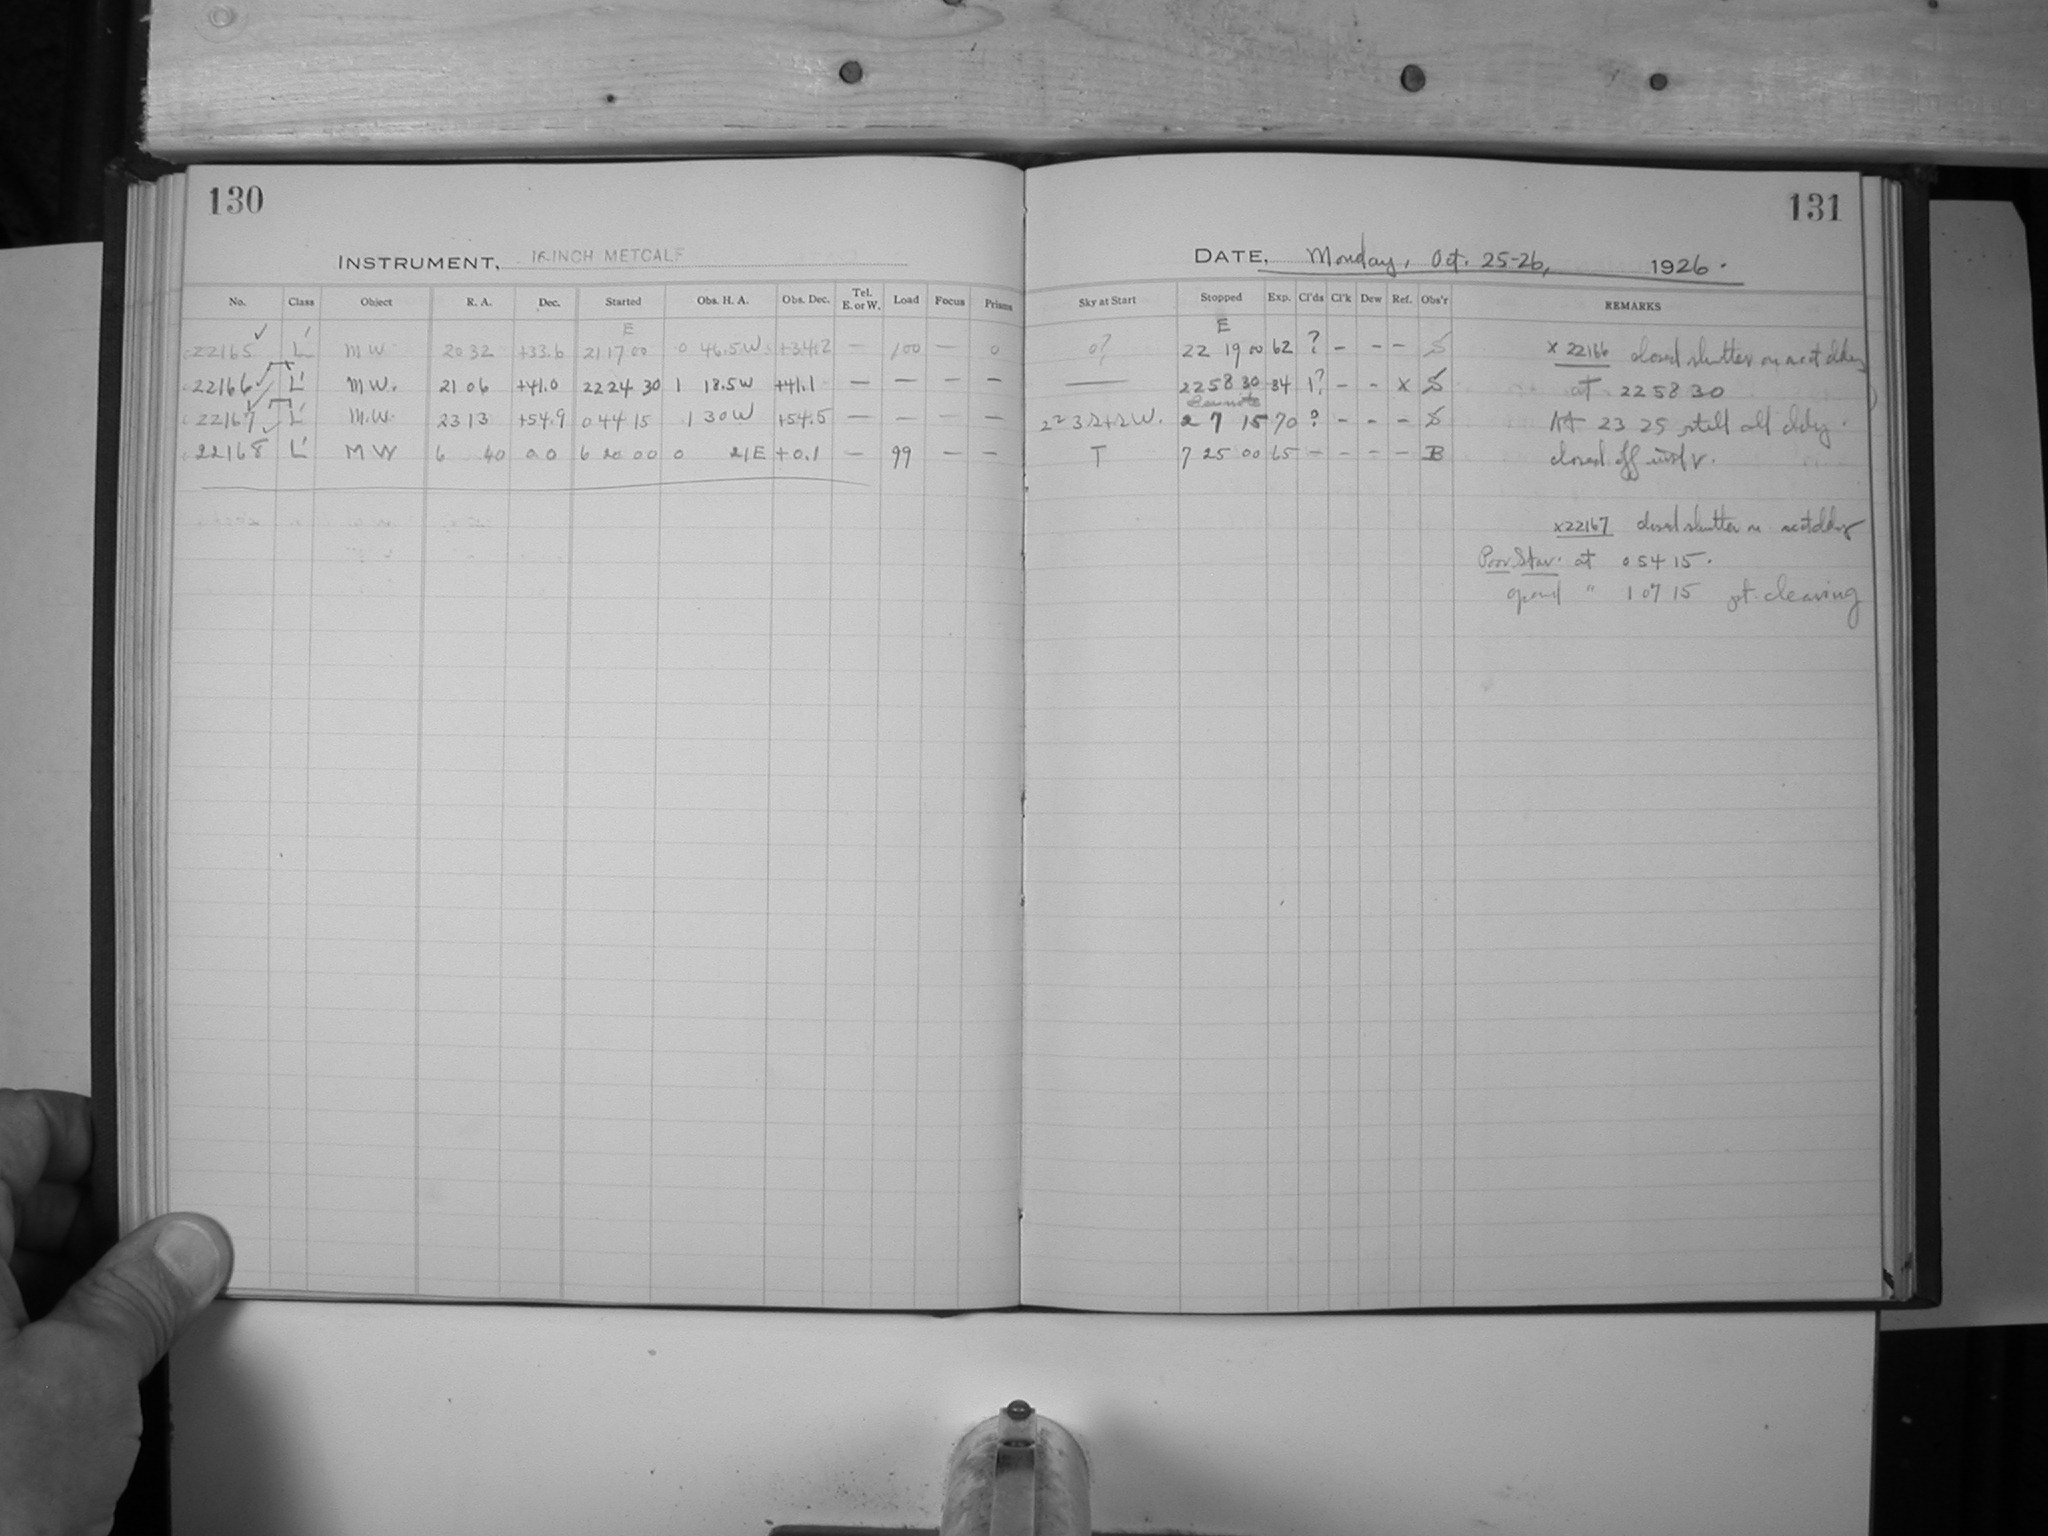 130
131
INSTRUMENT, 16-INCH METCALF
DATE, Monday, Oct. 25-26, 1926.
No. Class Object R. A. Dec. Started Obs. H. A. Obs. Dec. Tel. E. or W. Load Focus Prisms Sky at Start Stopped Exp. Cl'ds Cl'k Dew Ref. Obs'r REMARKS
E E
22165 ✓ L' MW 20 32 +33.6 21 17 00 0 46.5 W +34.2 — 100 — 0 0? 22 19 00 62 ? - - - S x 22166 closed shutter on acct cldy
22166 ✓ L' MW. 21 06 +41.0 22 24 30 1 18.5 W +41.1 — — — — — 22 58 30 34 1? - - x S at 22 58 30
22167 ✓ L' M.W. 23 13 +54.9 0 44 15 1 30 W +54.5 — — — — W. 2 7 15 70 ? - - - S At 23 25 still all cldy.
22168 L' MW 6 40 0.0 6 20 00 0 21 E +0.1 — 99 — — T 7 25 00 65 - - - - B closed off instr.
x 22167 closed shutter on acct cldy
Poor Star. at 0 54 15.
opened " 1 07 15 pt. clearing